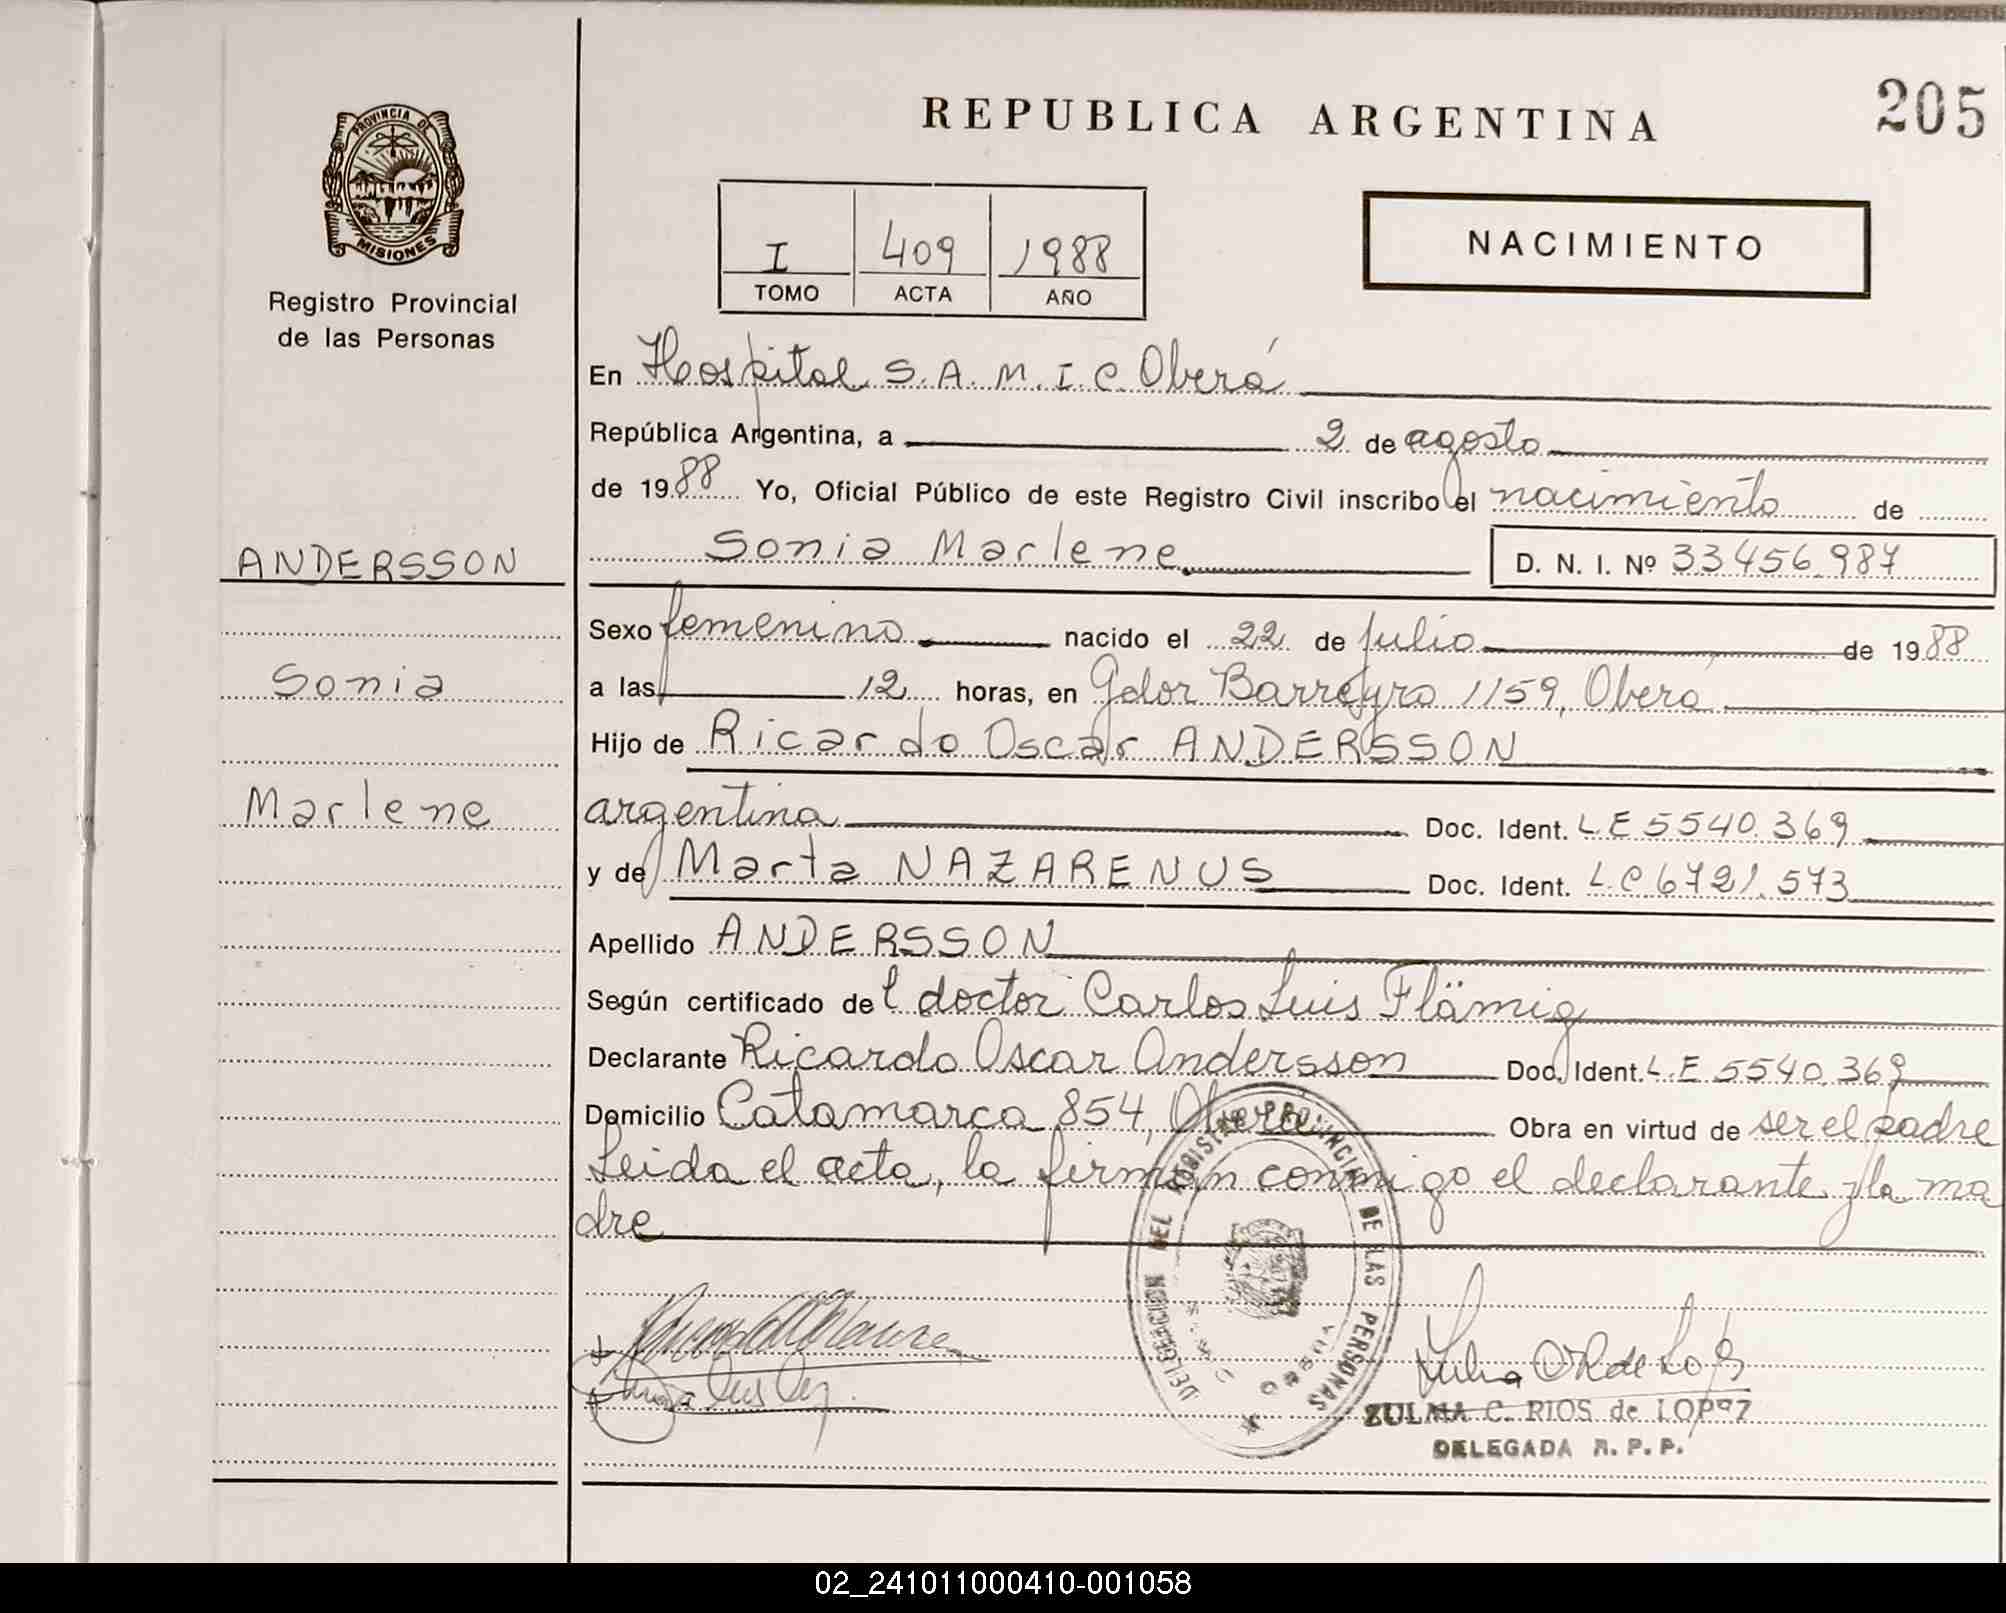 REPUBLICA ARGENTINA
205
PROVINCIA DE
MISIONES
Registro Provincial
de las Personas
I 409 1988
TOMO ACTA AÑO
NACIMIENTO
En Hospital S.A.M.I.C. Oberá
República Argentina, a 2 de agosto
de 1988 Yo, Oficial Público de este Registro Civil inscribo el nacimiento de
Sonia Marlene D. N. I. Nº 33456.987
ANDERSSON
Sonia
Marlene
Sexo femenino nacido el 22 de julio de 1988
a las 12 horas, en Gdor Barreyro 1159, Oberá
Hijo de Ricardo Oscar ANDERSSON
argentina Doc. Ident. L E 5540.369
y de Marta NAZARENUS Doc. Ident. L.C 6721.573
Apellido ANDERSSON
Según certificado del doctor Carlos Luis Flämig
Declarante Ricardo Oscar Andersson Doc. Ident. L.E 5540.369
Domicilio Catamarca 854, Oberá Obra en virtud de ser el padre
Leida el acta, la firman conmigo el declarante y la ma
dre
DELEGACION DEL REGISTRO PROVINCIAL DE LAS PERSONAS
ZULMA C. RIOS de LOPEZ
DELEGADA R. P. P.
02_241011000410-001058